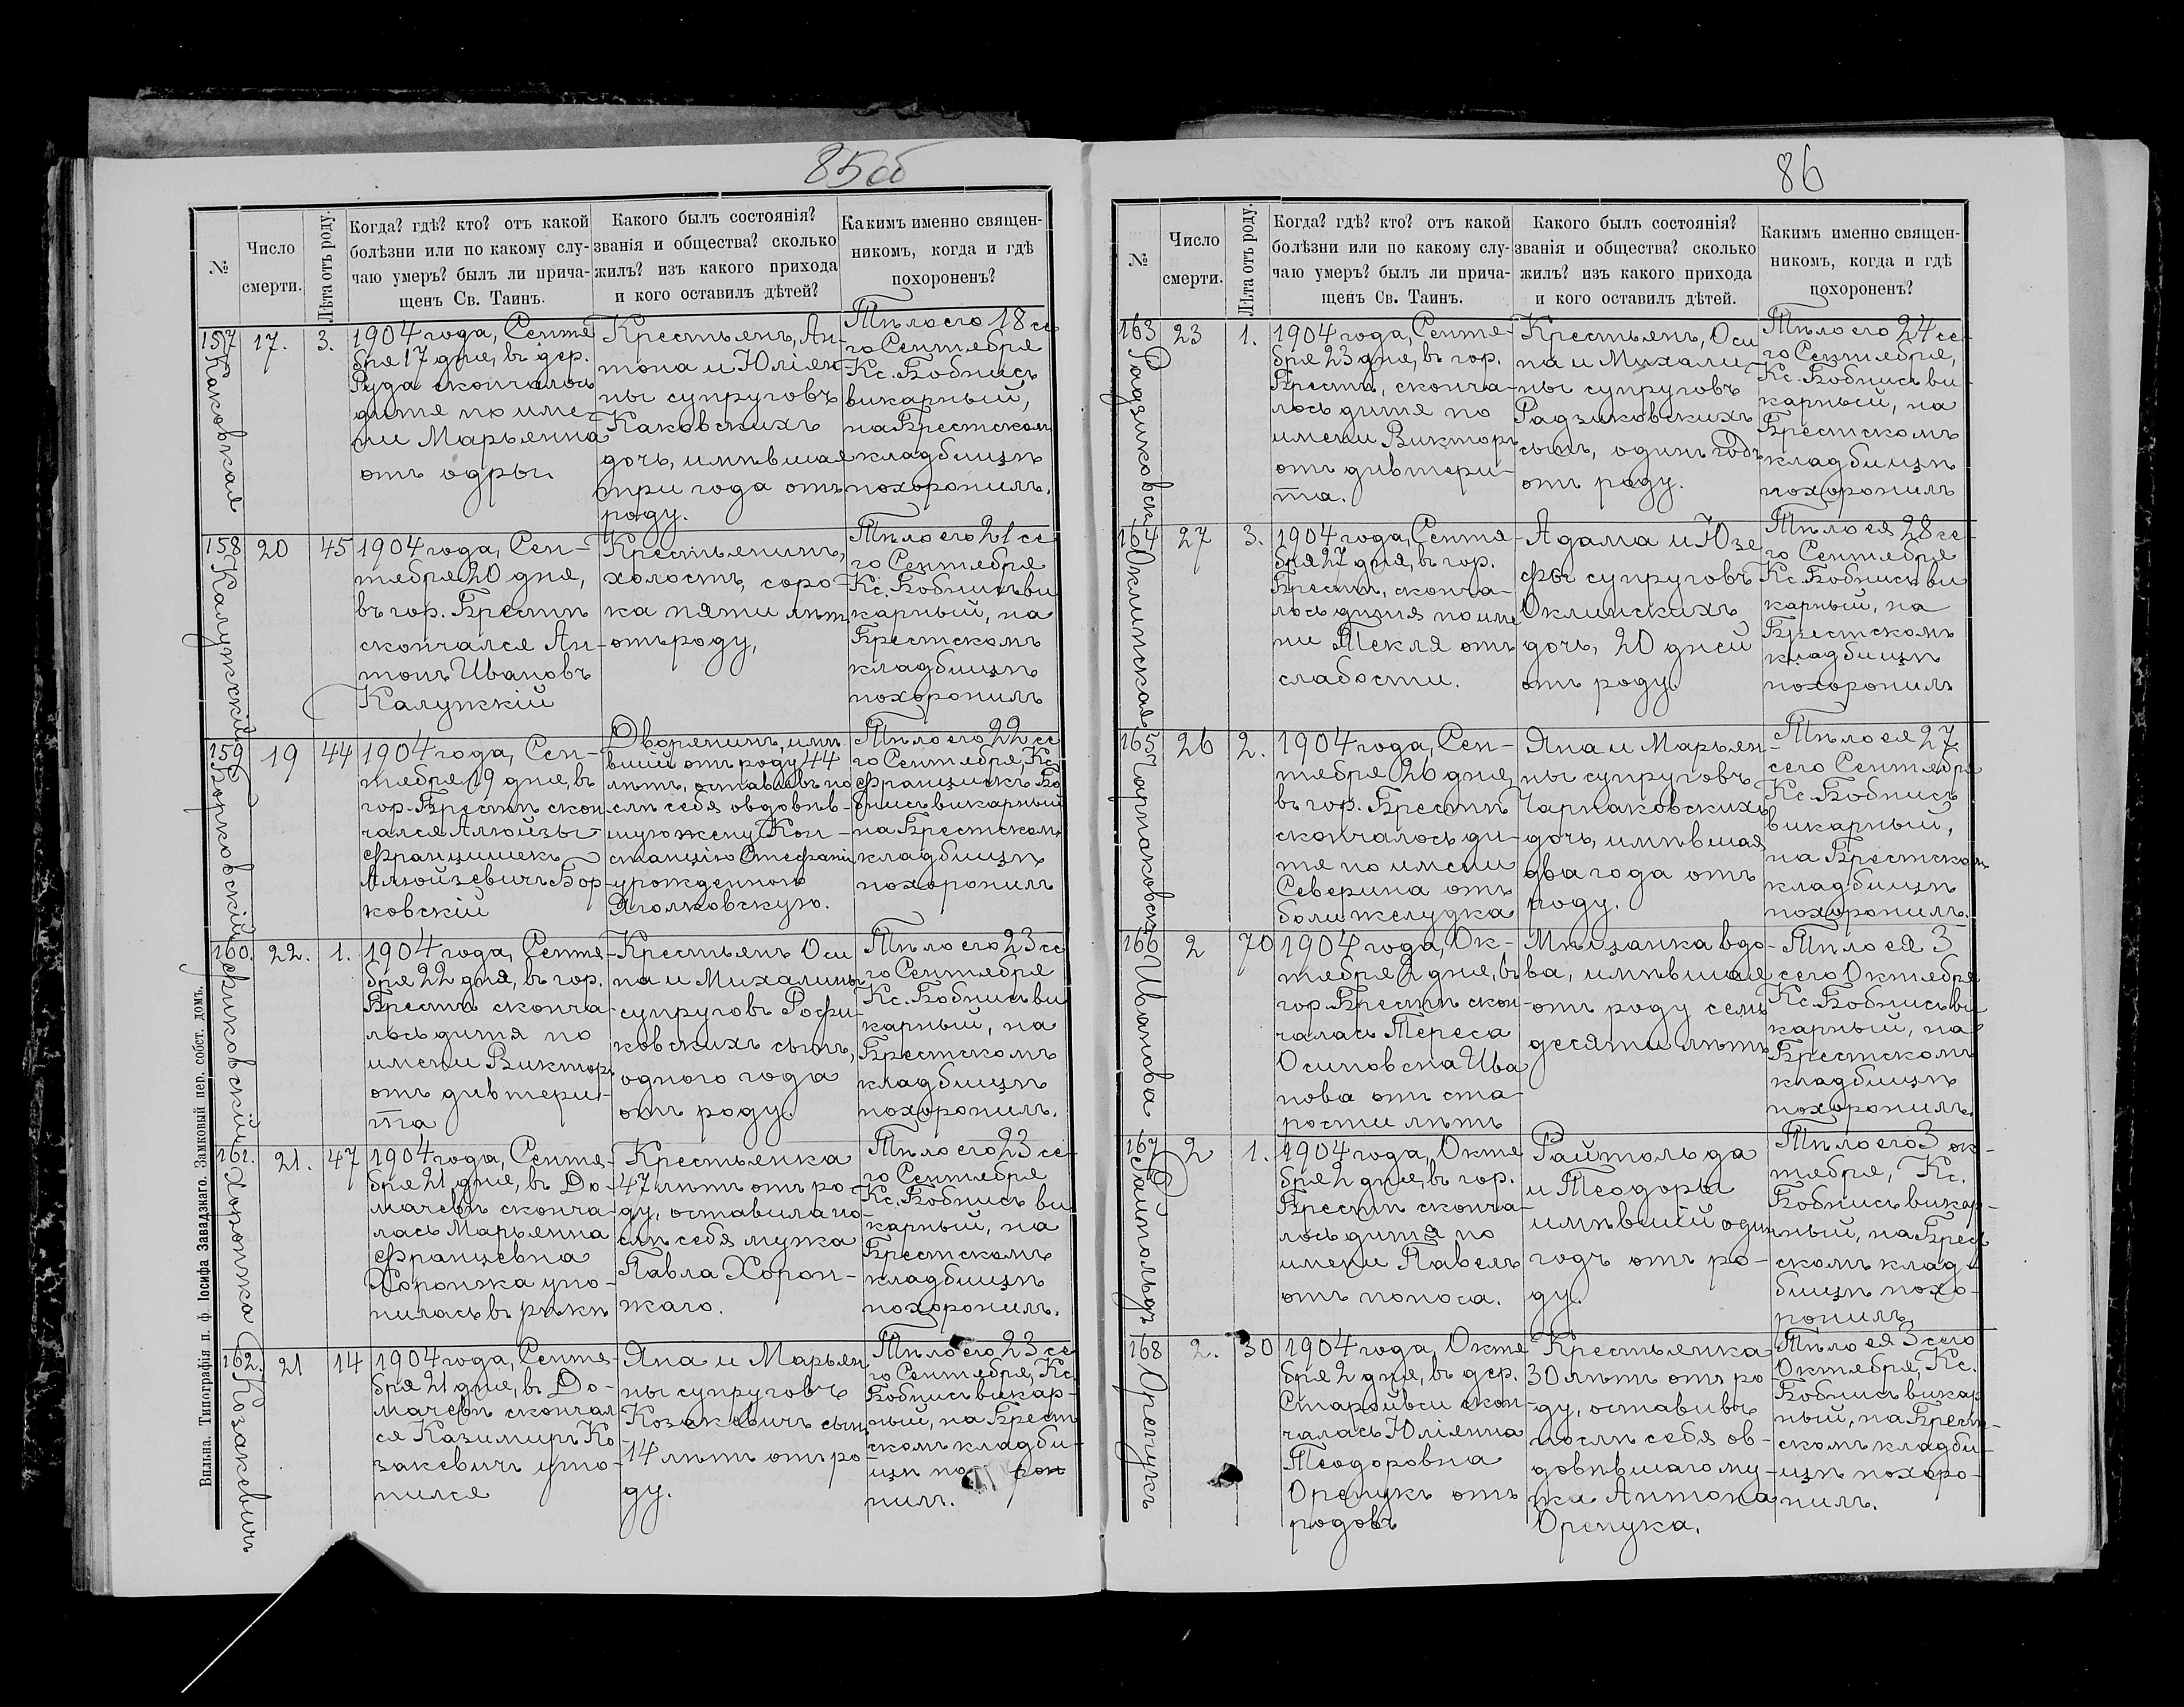 85об
№
Число
смерти.
Лѣта отъ роду.
Когда? гдѣ? кто? отъ какой
болѣзни или по какому слу-
чаю умеръ? былъ ли прича-
щенъ Св. Таинъ.
Какого былъ состоянія?
званія и общества? сколько
жилъ? изъ какого прихода
и кого оставилъ дѣтей?
Какимъ именно священ-
никомъ, когда и гдѣ
похороненъ?
157
Каковская
17.
3.
1904 года, Сентя
бря 17 дня, въ дер.
Руда скончалось
дитя по име-
ни Марьянна
отъ одры
Крестьянъ, Ан-
тона и Юліян-
ны супруговъ
Каковскихъ
дочь, имѣвшая
три года отъ
роду.
Тѣло его 18 се
го Сентября
Кс. Бобнисъ
викарный,
на Брестском
кладбищѣ
похоронилъ.
158
Калунжкій
20
45
1904 года, Сен-
тября 20 дня,
въ гор. Брестѣ
скончался Ан-
тонъ Ивановъ
Калунжкій
Крестьянинъ,
холостъ, соро-
ка пяти лѣтъ
отъ роду,
Тѣло его 21 се
го Сентября
Кс. Бобнисъ ви
карный, на
Брестскомъ
кладбищѣ
похоронилъ
159
Борковскій
19
44
1904 года, Сен-
тября 19 дня, въ
гор. Брестѣ скон
чался Алюйзы-
Францишекъ
Алюйзевичъ Бор-
ковскій
Дворянинъ, имѣ
вшій отъ роду 44
лѣтъ, оставивъ по
слѣ себя овдовѣв-
шую жену Кон-
станцію Стефанію
урожденною
Яголковскую.
Тѣло его 22 се
го Сентября, Кс.
Францискъ Бо
бнисъ викарный
на Брестском
кладбищѣ
похоронилъ
160.
Рофиковскій
22.
1.
1904 года, Сентя-
бря 22 дня, въ гор.
Брестѣ сконча
лось дитя по
имени Викторъ
отъ дивтери-
та
Крестьянъ Оси
па и Михалины
супруговъ Рофи-
ковскихъ сынъ,
одного года
отъ роду.
Тѣло его 23 се
го Сентября
Кс. Бобнисъ ви
карный, на
Брестскомъ
кладбищѣ
похоронилъ.
161.
Хоронжка
21.
47
1904 года, Сентя-
бря 21 дня, въ До-
мачевѣ сконча-
лась Марьянна
Францевна
Хоронжка уто-
нилась въ рѣкѣ
Крестьянка
47 лѣтъ отъ ро-
ду, оставила по-
слѣ себя мужа
Павла Хорон-
жаго.
Тѣло его 23 се-
го Сентября
Кс. Бобнисъ ви
карный, на
Брестскомъ
кладбищѣ
похоронилъ.
162.
Козакевичъ
21
14
1904 года, Сентя-
бря 21 дня, въ До-
мачевѣ скончал
ся Казимиръ Ко
закевичъ уто-
нился
Яна и Марьян
ны супруговъ
Козакевичъ сынъ
14 лѣтъ отъ ро
ду.
Тѣло его 23 се
го Сентября, Кс.
Бобнисъ викар-
ный, на Брест
скомъ кладби-
щѣ похо рон
нилъ.
Вильна. Типографія п. ф. Іосифа Завадзкаго. Замковый пер. собст. домъ.
86
№
Число
смерти.
Лѣта отъ роду.
Когда? гдѣ? кто? отъ какой
болѣзни или по какому слу-
чаю умеръ? былъ ли прича-
щенъ Св. Таинъ.
Какого былъ состоянія?
званія и общества? сколько
жилъ? изъ какого прихода
и кого оставилъ дѣтей.
Какимъ именно священ-
никомъ, когда и гдѣ
похороненъ?
163
Радзиковскі
23
1.
1904 года, Сентя-
бря 23 дня, въ гор.
Брестѣ, сконча-
лось дитя по
имени Викторъ
отъ дивтери-
та.
Крестьянъ, Оси
па и Михали-
ны супруговъ
Радзиковскихъ
сынъ, одинъ годъ
отъ роду.
Тѣло его 24 се-
го Сентября,
Кс. Бобнисъ ви-
карный, на
Брестскомъ
кладбищѣ
похоронилъ
164
Оклинская
27
3.
1904 года, Сентя-
бря 27 дня, въ гор.
Брестѣ, сконча-
лось дитя по име
ни Текля отъ
слабости.
Адама и Юзе
фы супруговъ
Оклинскихъ
дочь, 20 дней
отъ роду.
Тѣло ея 28 се-
го Сентября
Кс. Бобнисъ ви
карный, на
Брестскомъ
кладбищѣ
похоронилъ
165
Чарнаковска
26
2.
1904 года, Сен-
тября 26 дня,
въ гор. Брестѣ
скончалось ди-
тя по имени
Северина отъ
боли желудка
Яна и Марьян-
ны супруговъ
Чарнаковскихъ
дочь, имѣвшая
два года отъ
роду.
Тѣло ея 27
сего Сентября
Кс. Бобнисъ
викарный,
на Брестском
кладбищѣ
похоронилъ.
166
Иванова
2
70
1904 года, Ок-
тября 2 дня, въ
гор. Брестѣ скон
чалась Тереса
Осиповна Ива
нова отъ ста-
рости лѣтъ
Мѣщанка вдо-
ва, имѣвшая
отъ роду семь
десяти лѣтъ
Тѣло ея 3
сего Октября
Кс. Бобнисъ ви
карный, на
Брестскомъ
кладбищѣ
похоронилъ.
167
Райтольдъ
2
1.
1904 года, Октя
бря 2 дня, въ гор.
Брестѣ сконча-
лось дитя по
имени Павелъ
отъ поноса.
Райтольда
и Теодоры
имѣвшій один
годъ отъ ро-
ду.
Тѣло его 3 ок-
тября, Кс.
Бобнисъ викар-
ный, на Брест
скомъ клад-
бищѣ похо-
ронилъ
168
Орепукъ
2.
30
1904 года, Октя
бря 2 дня, въ дер.
Старойвси скон-
чалась Юліянна
Теодоровна
Орепукъ отъ
родовъ
Крестьянка
30 лѣтъ отъ ро
ду, оставивъ
послѣ себя ов-
довѣвшаго му-
жа Антона
Орепука.
Тѣло ея 3 сего
Октября, Кс.
Бобнисъ викар
ный, на Брест-
скомъ кладби-
щѣ похоро-
нилъ.